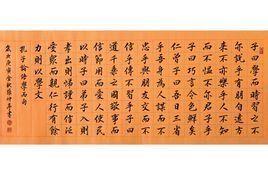 子曰學而時習之不
亦說乎有朋自遠方
來不亦樂乎人不知
而不慍不亦君子乎
子曰巧言令色鮮矣
仁曾子曰吾日三省
乎吾身為人謀而不
忠乎與朋友交而不
信乎傳不習乎子曰
道千乘之國敬事而
信節用而愛人使民
以時子曰弟子入則
孝出則悌謹而信汎
愛眾而親仁行有餘
力則以學文
孔子論語學而句
歲次庚寅金秋張仲亭書